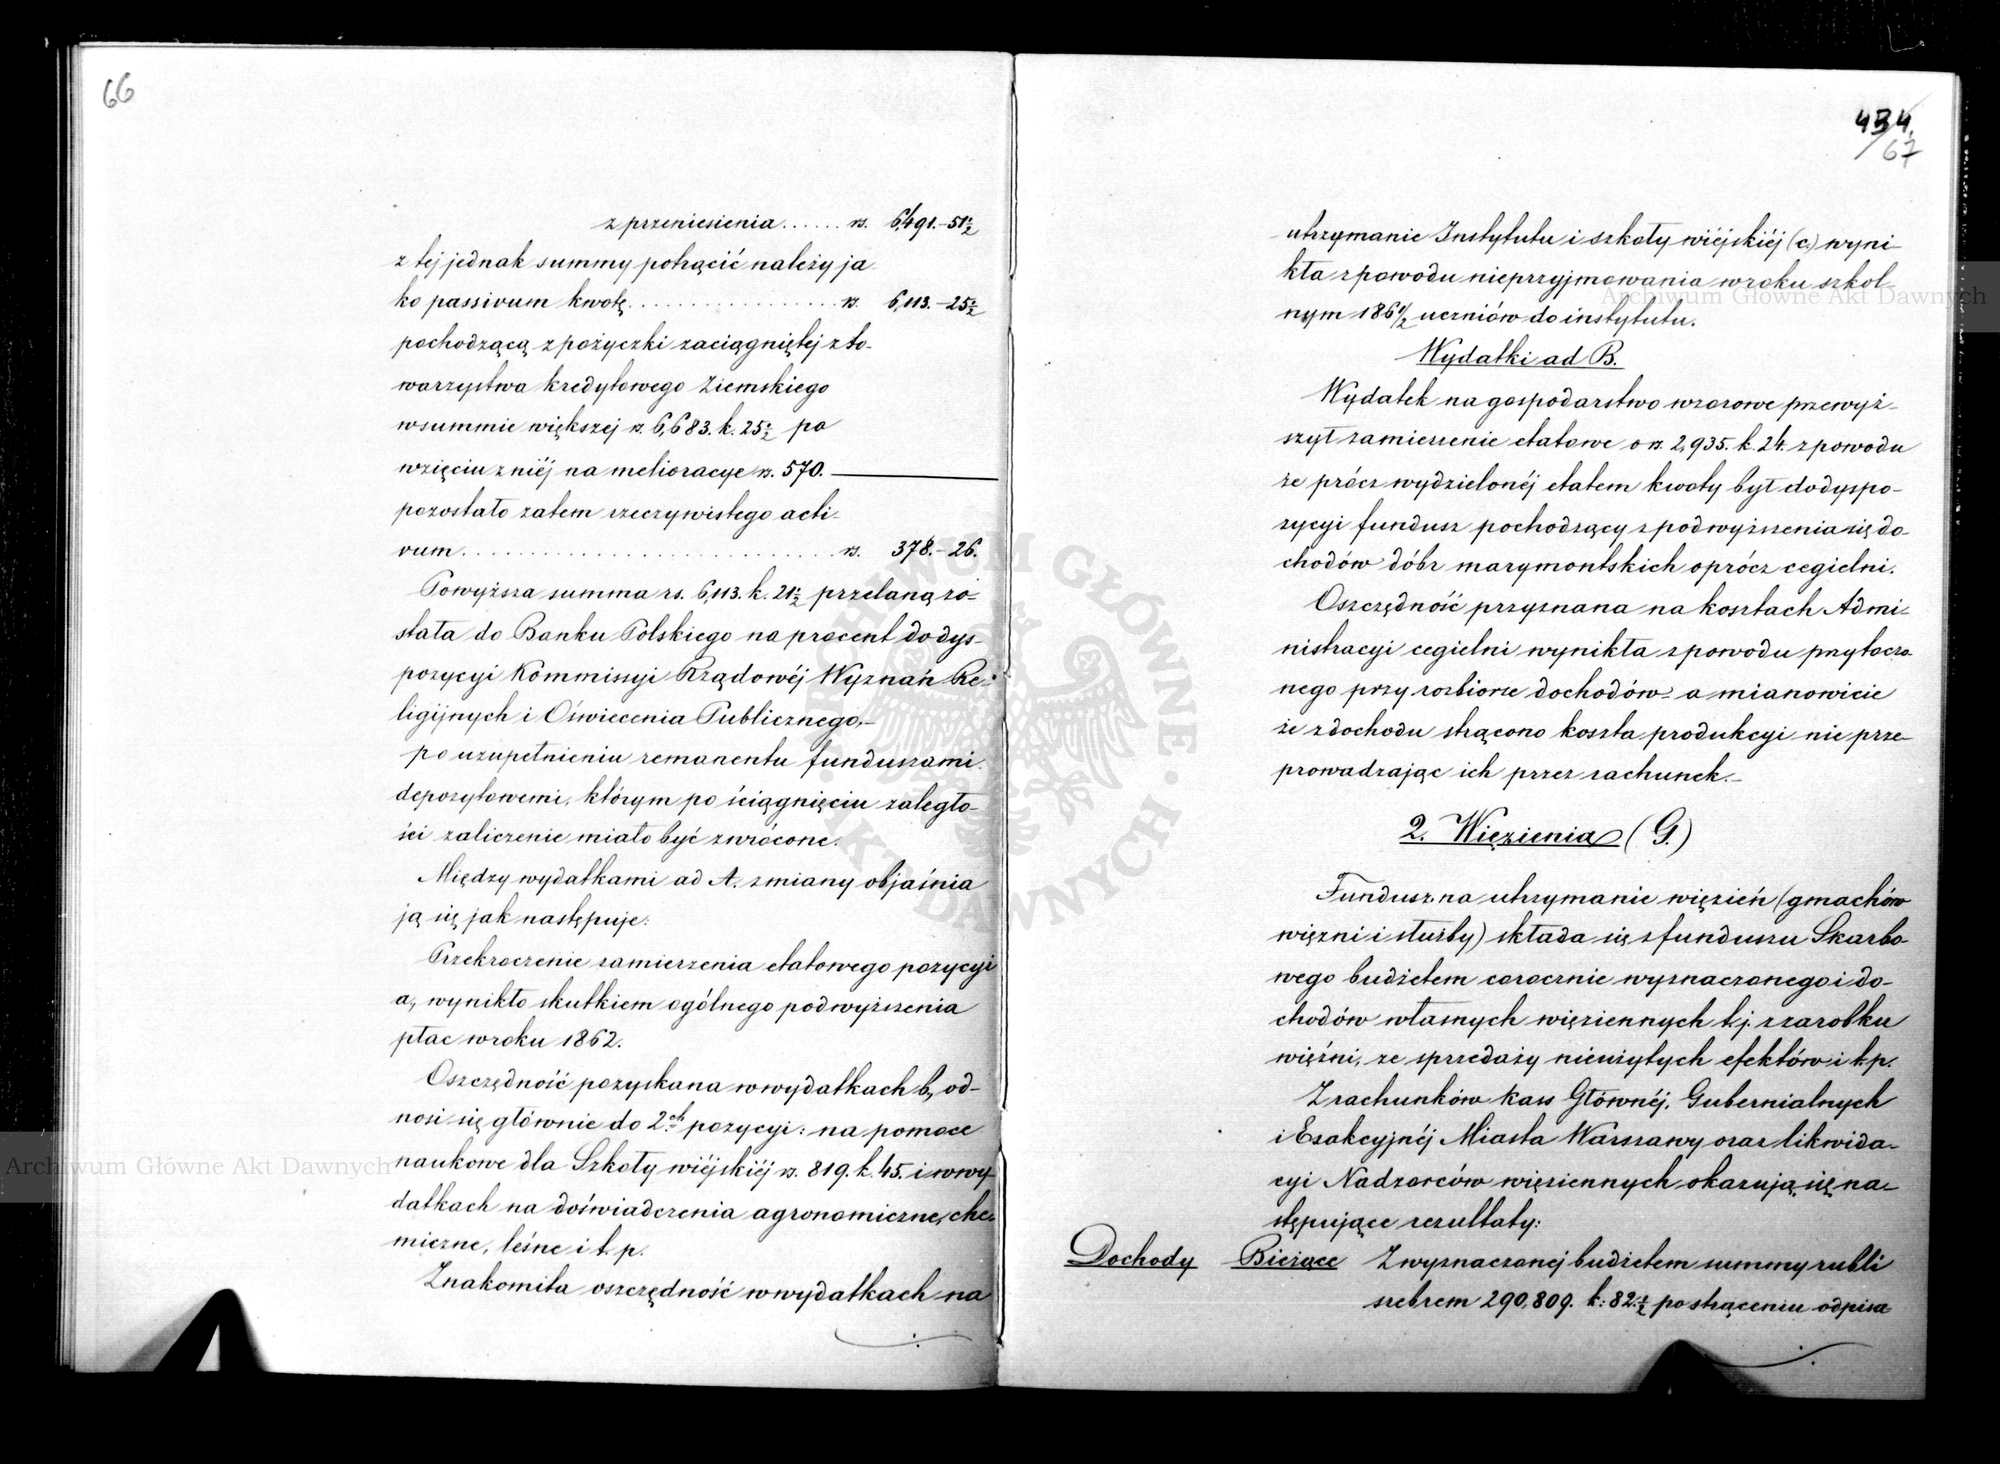 66
z przeniesienia...... rs. 6,491.-51½
z tej jednak summy potrącić należy ja-
ko passivum kwotę................ rs. 6,113.-25½
pochodzącą z pożyczki zaciągniętej z to-
warzystwa kredytowego Ziemskiego
w summie większej rs. 6,683. k. 25½ po
wzięciu z niéj na melioracye rs. 570.
pozostało zatem rzeczywistego acti-
vum............................ rs. 378.-26.
Powyższa summa rs. 6,113. k. 21½ przelaną zo-
stała do Banku Polskiego na procent do dys-
pozycyi Kommissyi Rządowéj Wyznań Re-
ligijnych i Oświecenia Publicznego.-
po uzupełnieniu remanentu funduszami
depozytowemi, którym po ściągnięciu zaległo-
ści zaliczenie miało być zwrócone.
Między wydatkami ad A. zmiany objaśnia
ją się jak następuje:
Przekroczenie zamierzenia etatowego pozycyi
a, wynikło skutkiem ogólnego podwyższenia
płac w roku 1862.
Oszczędność pozyskana w wydatkach b, od-
nosi się głównie do 2ch pozycyi: na pomoce
naukowe dla Szkoły wiéjskiéj rs. 819. k. 45. i w wy-
datkach na doświadczenia agronomiczne, che-
miczne, leśne i t. p.
Znakomita oszczędność w wydatkach na
434.
67
utrzymanie Instytutu i szkoły wiéjskiéj (c.) wyni-
kła z powodu nieprzyjmowania w roku szkol-
nym 1861/2 uczniów do instytutu.
Wydatki ad B.
Wydatek na gospodarstwo wzorowe przewyż-
szył zamierzenie etatowe o rs. 2,935. k. 24. z powodu
że prócz wydzielonéj etatem kwoty był do dyspo-
zycyi fundusz pochodzący z podwyższenia się do-
chodów dóbr marymontskich oprócz cegielni.
Oszczędność przyznana na kosztach Admi-
nistracyi cegielni wynikła z powodu przytoczo-
nego przy rozbiorze dochodów - a mianowicie
że z dochodu strącono koszta produkcyi nie prze-
prowadzając ich przez rachunek.-
2. Więzienia (G.)
Fundusz na utrzymanie więzień (gmachów
więzni i służby) składa się z funduszu Skarbo-
wego budżetem corocznie wyznaczonego i do-
chodów własnych więziennych t. j. z zarobku
więźni, ze sprzedaży nieużytych efektów i t. p.
Z rachunków kass Głównéj, Gubernialnych
i Exakcyjnéj Miasta Warszawy oraz likwida-
cyi Nadzorców więziennych okazują się na-
stępujące rezultaty:
Dochody Bieżące Z wyznaczonej budżetem summy rubli
srebrem 290,809. k: 82½ po strąceniu odpisa
Archiwum Główne Akt Dawnych
Archiwum Główne Akt Dawnych
ARCHIWUM GŁÓWNE AKT DAWNYCH